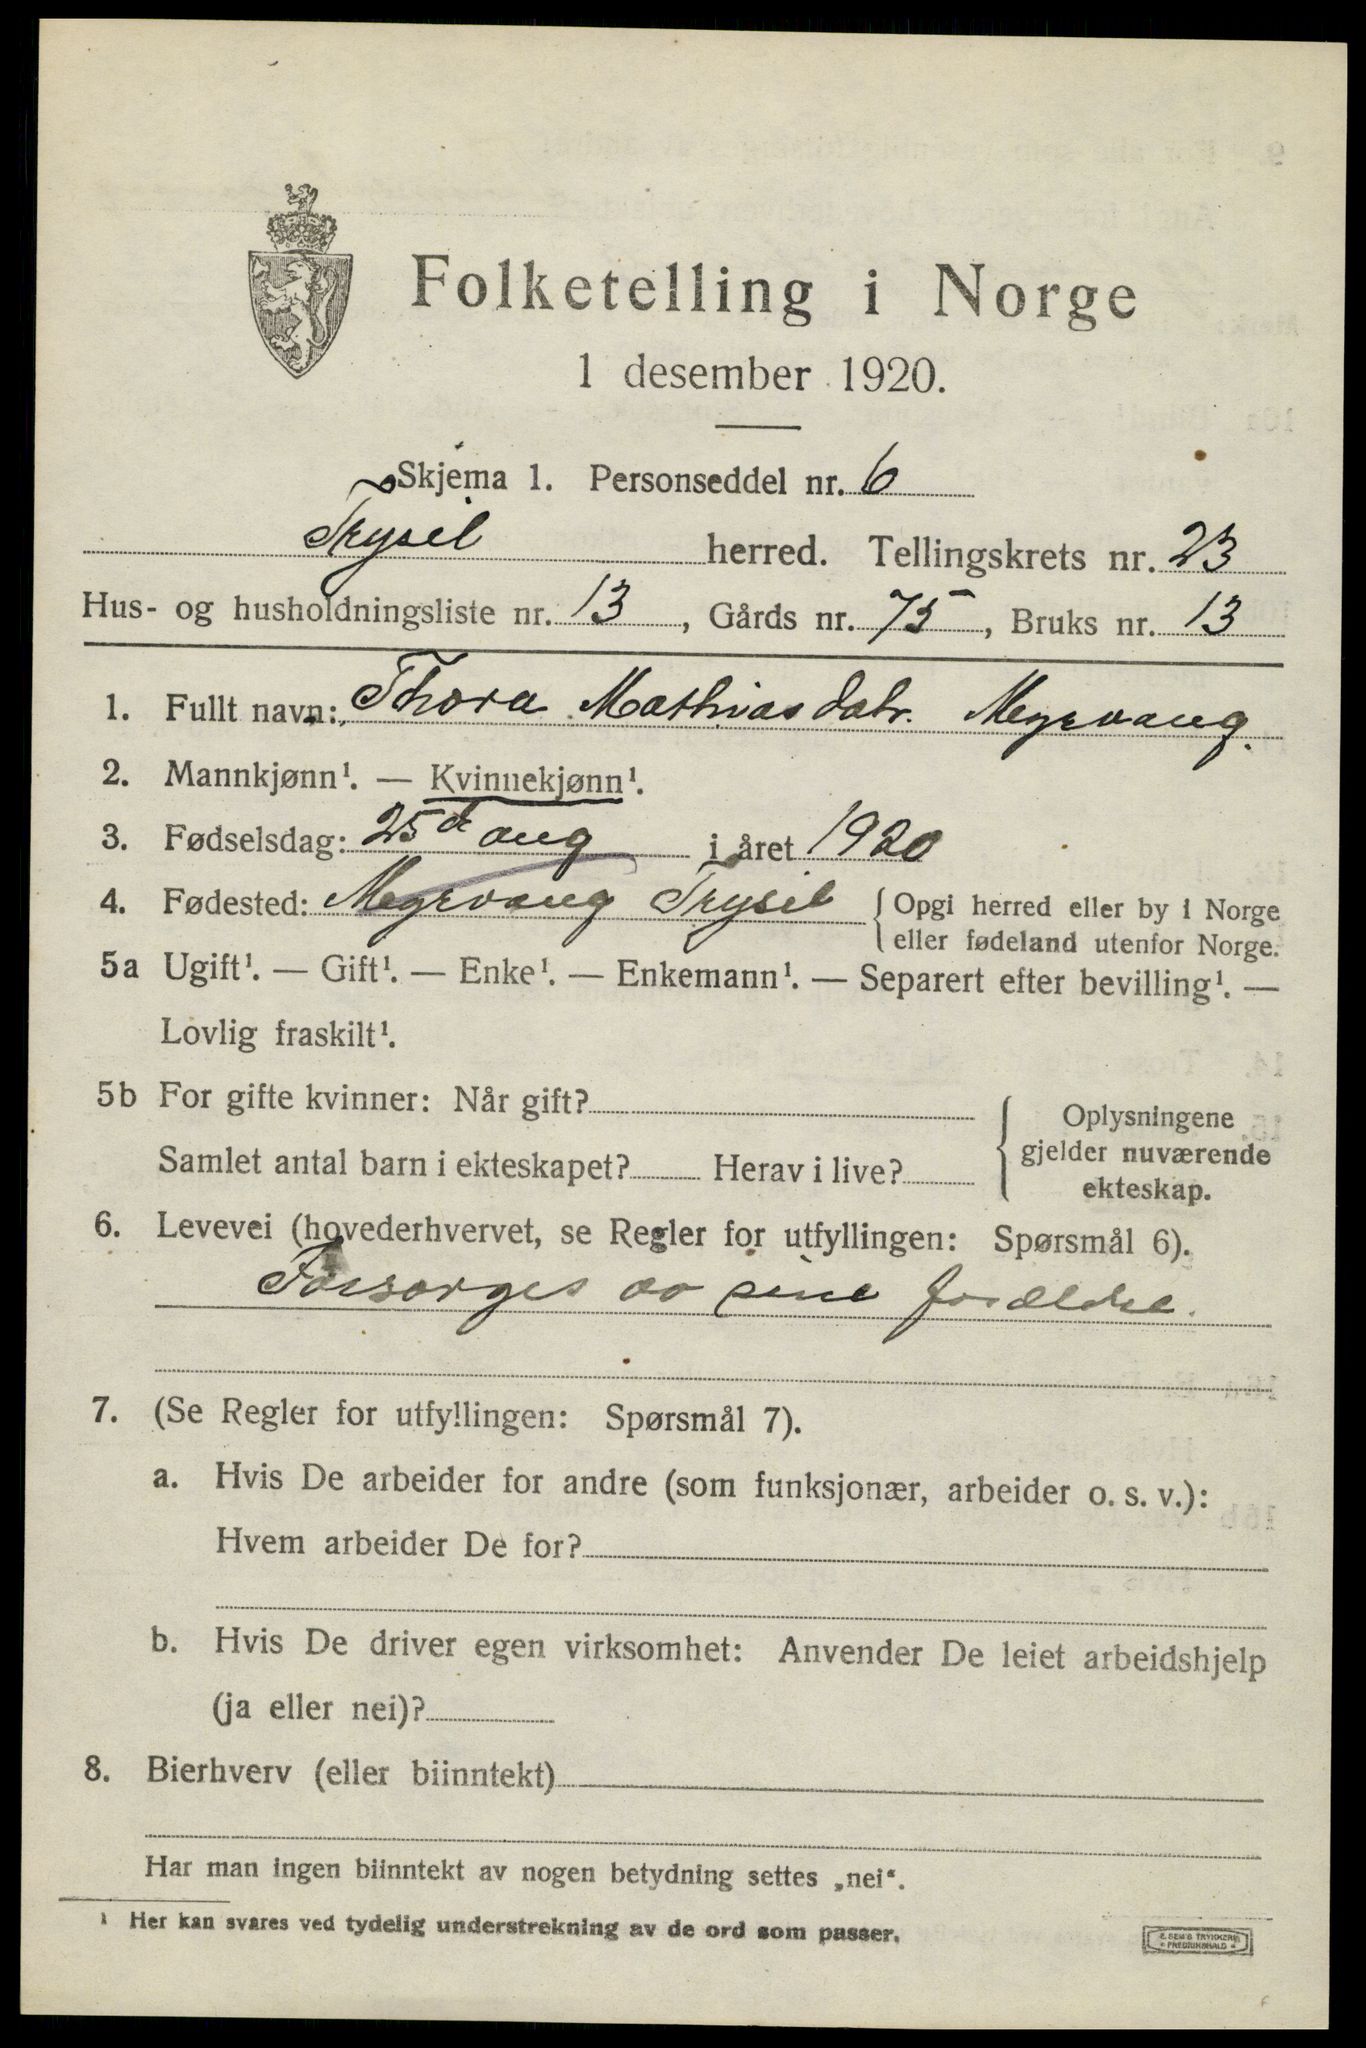 Folketelling i Norge
1 desember 1920.
Skjema 1. Personseddel nr. 6
Trysil herred. Tellingskrets nr. 23
Hus- og husholdningsliste nr. 13, Gårds nr. 75, Bruks nr. 13
1. Fullt navn: Thora Mathiasdatr. Myrvang.
2. Mannkjønn¹. — Kvinnekjønn¹.
3. Fødselsdag: 25de aug i året 1920
4. Fødested: Myrvang Trysil { Opgi herred eller by i Norge
eller fødeland utenfor Norge.
5a Ugift¹. — Gift¹. — Enke¹. — Enkemann¹. — Separert efter bevilling¹. —
Lovlig fraskilt¹.
5b For gifte kvinner: Når gift?
Samlet antal barn i ekteskapet? Herav i live?
{ Oplysningene
gjelder nuværende
ekteskap.
6. Levevei (hovederhvervet, se Regler for utfyllingen: Spørsmål 6).
Forsørges av sine forældre.
7. (Se Regler for utfyllingen: Spørsmål 7).
a. Hvis De arbeider for andre (som funksjonær, arbeider o. s. v.):
Hvem arbeider De for?
b. Hvis De driver egen virksomhet: Anvender De leiet arbeidshjelp
(ja eller nei)?
8. Bierhverv (eller biinntekt)
Har man ingen biinntekt av nogen betydning settes „nei“.
¹ Her kan svares ved tydelig understrekning av de ord som passer.
E. SEM'S TRYKKERI
FREDRIKSHALD